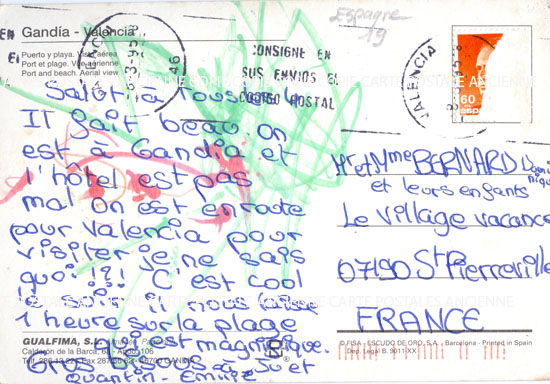 Gandía - Valencia
Puerto y playa. Vista aérea
Port et plage. Vue aérienne
Port and beach. Aerial view
Espagne
19
CONSIGNE EN
SUS ENVIOS EL
CODIGO POSTAL
VALENCIA
60
Salut à tous
Il fait beau. On
est à Gandia et
l'hôtel est pas
mal on est en route
pour Valencia pour
visiter je ne sais
quoi !?! C'est cool
il nous
1 heure sur la plage
est magnifique.
Gros bisous à et
Quantin - Emilie
Mr et Mme BERNARD
et leurs enfants
Le Village vacance
07190 St Pierreville
FRANCE
GUALFIMA, S.L.
Calderón de la Barca,
© FISA - ESCUDO DE ORO, S.A. - Barcelona - Printed in Spain
Dep. Legal B. 9011-XX